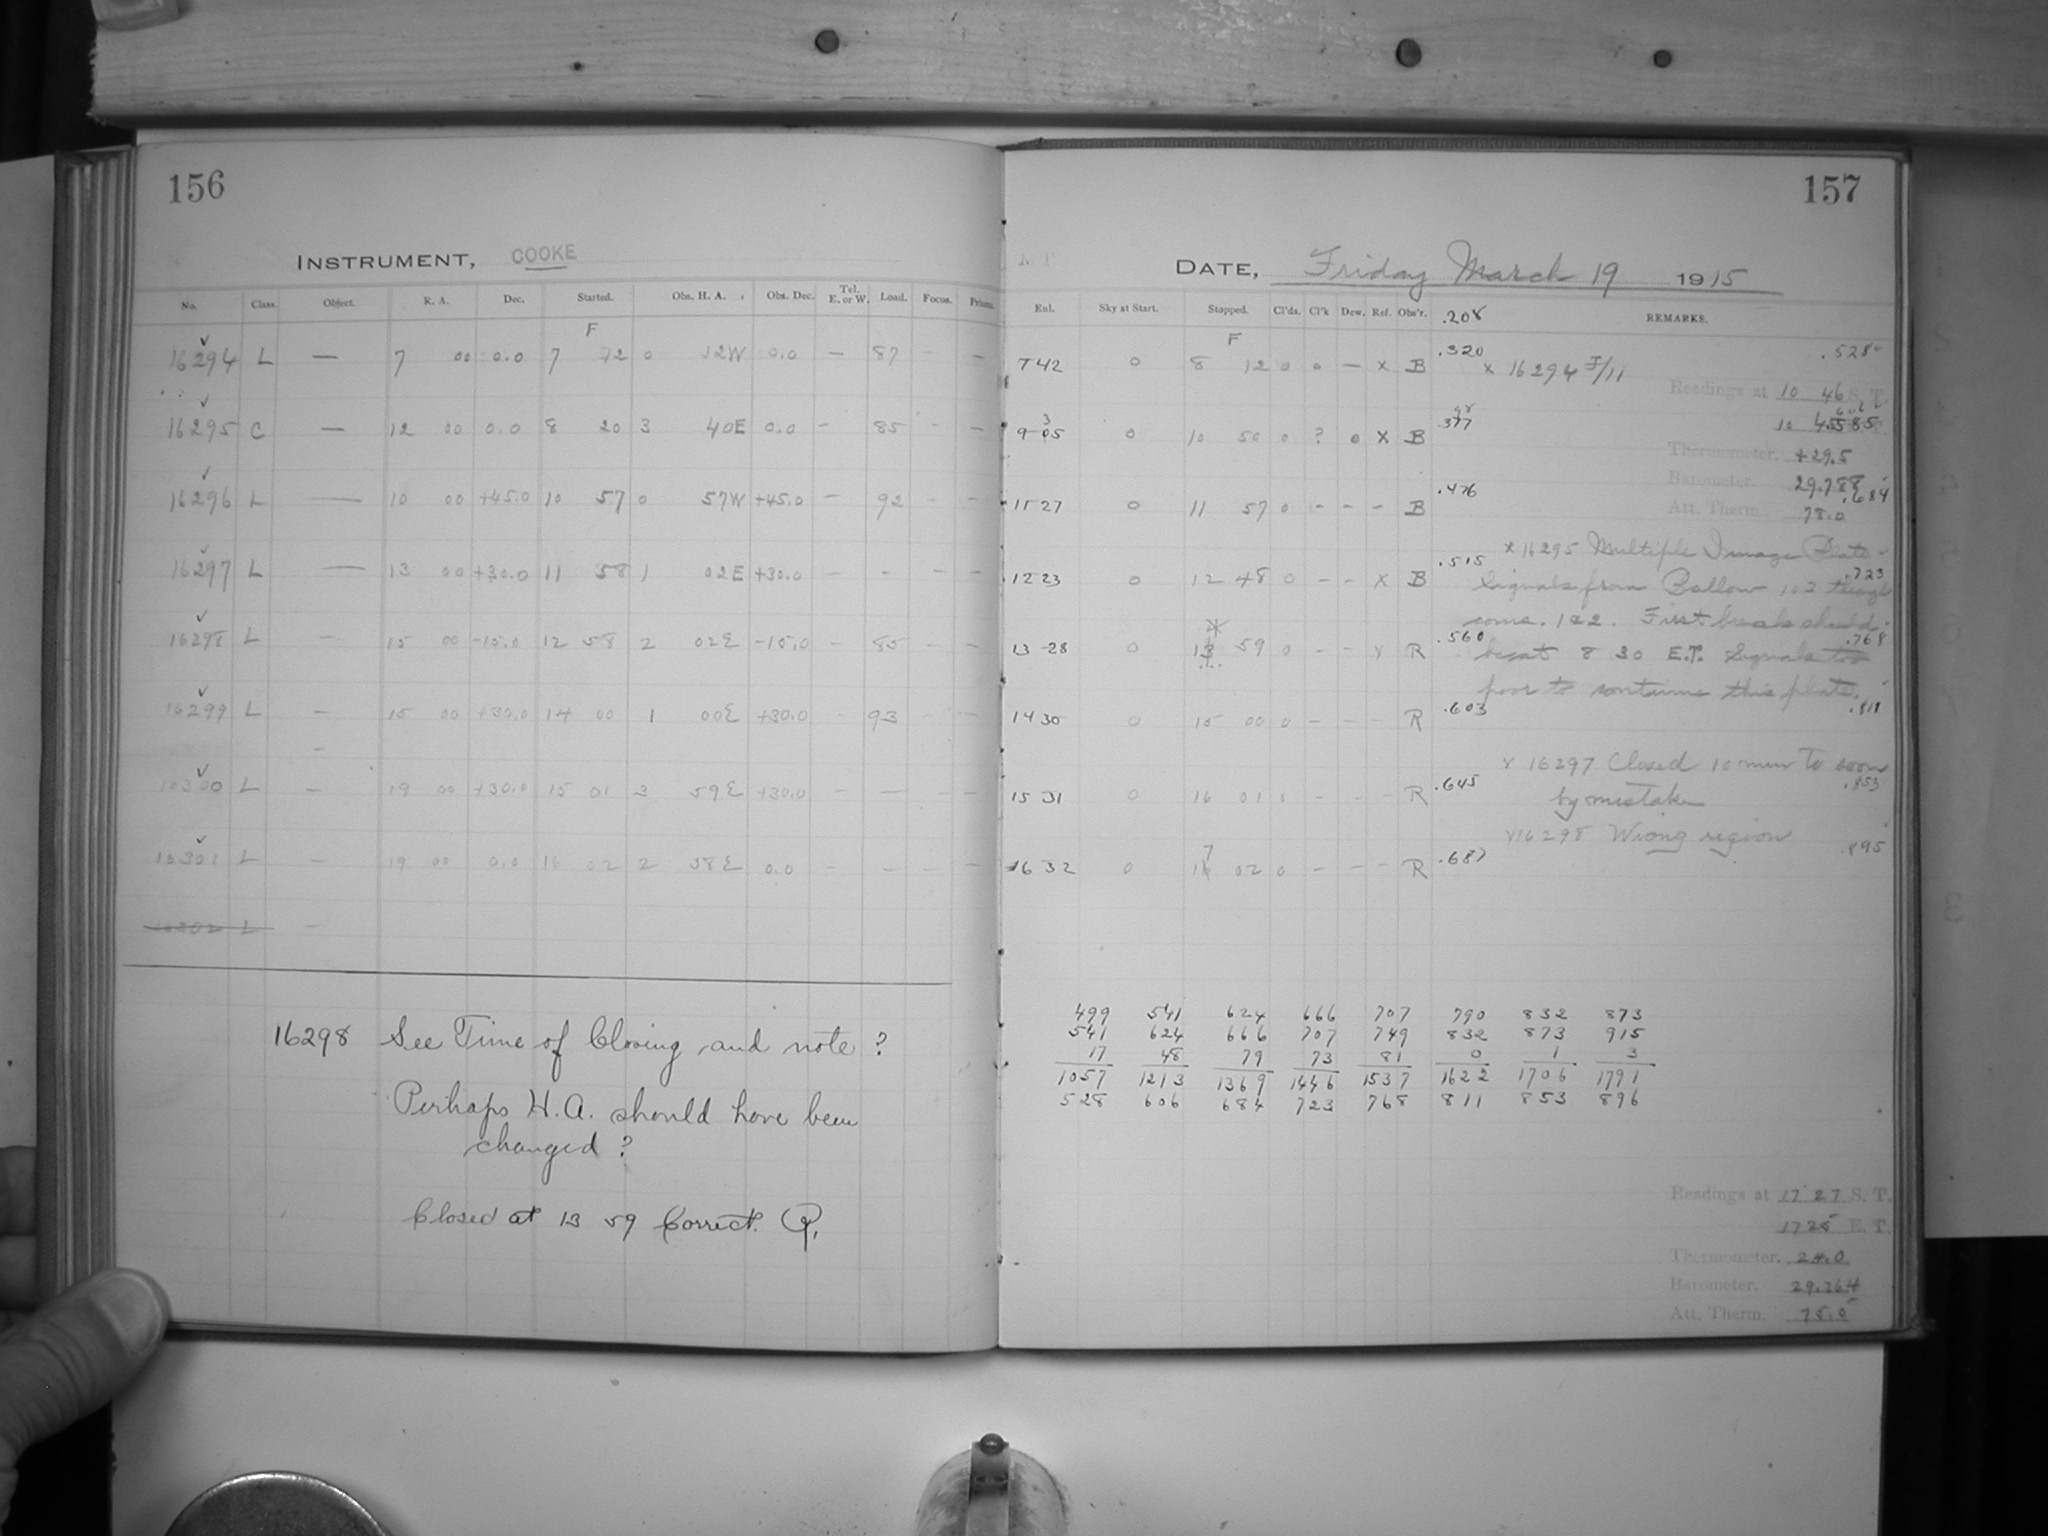 156
INSTRUMENT, COOKE
No. Class. Object. R. A. Dec. Started. Obs. H. A. Obs. Dec. Tel. E. or W. Load. Focus. Prisms.
F
16294 L — 7 00 0.0 7 12 0 12W 0.0 — 87 - —
16295 C — 12 00 0.0 8 20 3 40E 0.0 — 85 - —
16296 L — 10 00 +45.0 10 57 0 57W +45.0 — 92 - -
16297 L — 13 00 +30.0 11 58 1 02E +30.0 — - — -
16298 L — 15 00 -15.0 12 58 2 02E -15.0 — 85 - -
16299 L — 15 00 +30.0 14 00 1 00E +30.0 - 93 - -
16300 L — 19 00 +30.0 15 01 3 59E +30.0 — — - -
16301 L — 19 00 0.0 16 02 2 58E 0.0 — — - —
16302 L —
16298 See Time of Closing and note ?
Perhaps H. A. should have been
changed ?
Closed at 13 59 Correct. R.
157
DATE, Friday March 19 1915
Enl. Sky at Start. Stopped. Cl'ds. Cl'k Dew. Ref. Obs'r. .208 REMARKS.
F
7 42 0 8 12 0 0 — x B .320 x 16294 F/11 .528
Readings at 10 46 S. T.
9 35 0 10 50 0 ? 0 x B
Thermometer. +29.5
Barometer. 29.788
11 27 0 11 57 0 - - - B .476 .684
Att. Therm. 78.0
x 16295 Multiple Image Plate
12 23 0 12 48 0 - - x B .515 Signals from Ballou 102 .723
coms. 1 & 2. First break should
*
13 28 0 13 59 0 - - x R .560 be at 8 30 E.T. Signals too .768
poor to continue this plate.
14 30 0 15 00 0 - - - R .603 .811
x 16297 Closed 10 min to soon
15 31 0 16 01 - - - R .645 by mistake .853
x 16298 Wrong region
16 32 0 17 02 0 - - - R .687 .895
499 541 624 666 707 790 832 873
541 624 666 707 749 832 873 915
17 48 79 73 81 0 1 3
1057 1213 1369 1446 1537 1622 1706 1791
528 606 684 723 768 811 853 896
Readings at 17 27 S. T.
17 25 E. T.
Thermometer. 24.0
Barometer. 29.764
Att. Therm. 75.5